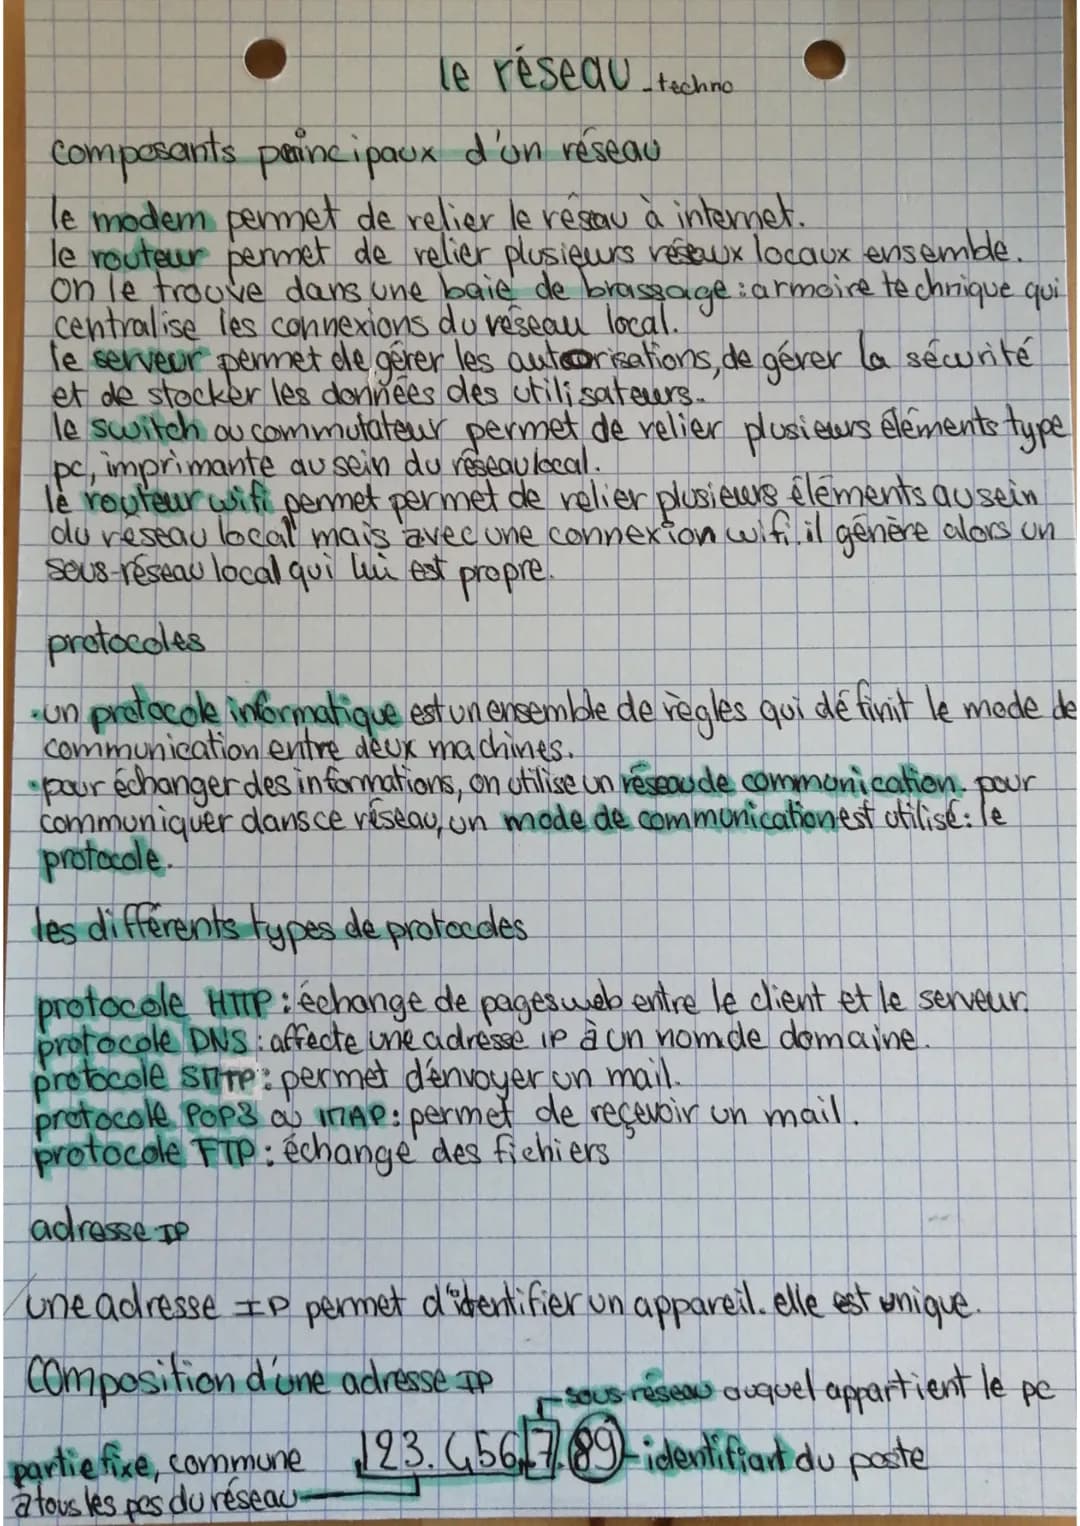 le réseau - techno
composants principaux d'un réseau
le modem permet de relier le réseau à internet.
le routeur permet de relier plusieurs réseaux locaux ensemble.
on le trouve dans une baie de brassage : armoire technique qui
centralise les connexions du réseau local.
le serveur permet de gérer les autorisations, de gérer la sécurité
et de stocker les données des utilisateurs.
le switch ou commutateur permet de relier plusieurs éléments type
pc, imprimante au sein du réseau local.
le routeur wifi permet permet de relier plusieurs éléments au sein
du reseau local mais avec une connexion wifi. il génère alors un
sous-réseau local qui lui est propre.
protocoles
• un protocole informatique est un ensemble de règles qui définit le mode de
communication entre deux machines.
• pour échanger des informations, on utilise un réseau de communication. pour
communiquer dans ce réseau, un mode de communication est utilisé : le
protocole.
les différents types de protocoles
protocole HTTP : échange de pages web entre le client et le serveur.
protocole DNS : affecte une adresse IP à un nom de domaine.
protocole SMTP : permet d'envoyer un mail.
protocole POP3 ou IMAP : permet de reçevoir un mail.
protocole FTP : échange des fichiers
adresse IP
une adresse IP permet d'identifier un appareil. elle est unique.
composition d'une adresse IP
sous-réseau auquel appartient le pc
partie fixe, commune 123.456.7.89 - identifiant du poste
à tous les pcs du réseau